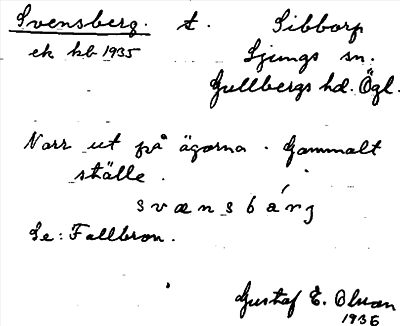 Svensberg. t. Sibborp
ek kb 1935 Ljungs sn.
Gullbergs hd. Ögl.
Norr ut på ägorna. Gammalt
ställe.
svænsbárg
Se: Fallbron.
Gustaf E. Olsson
1935